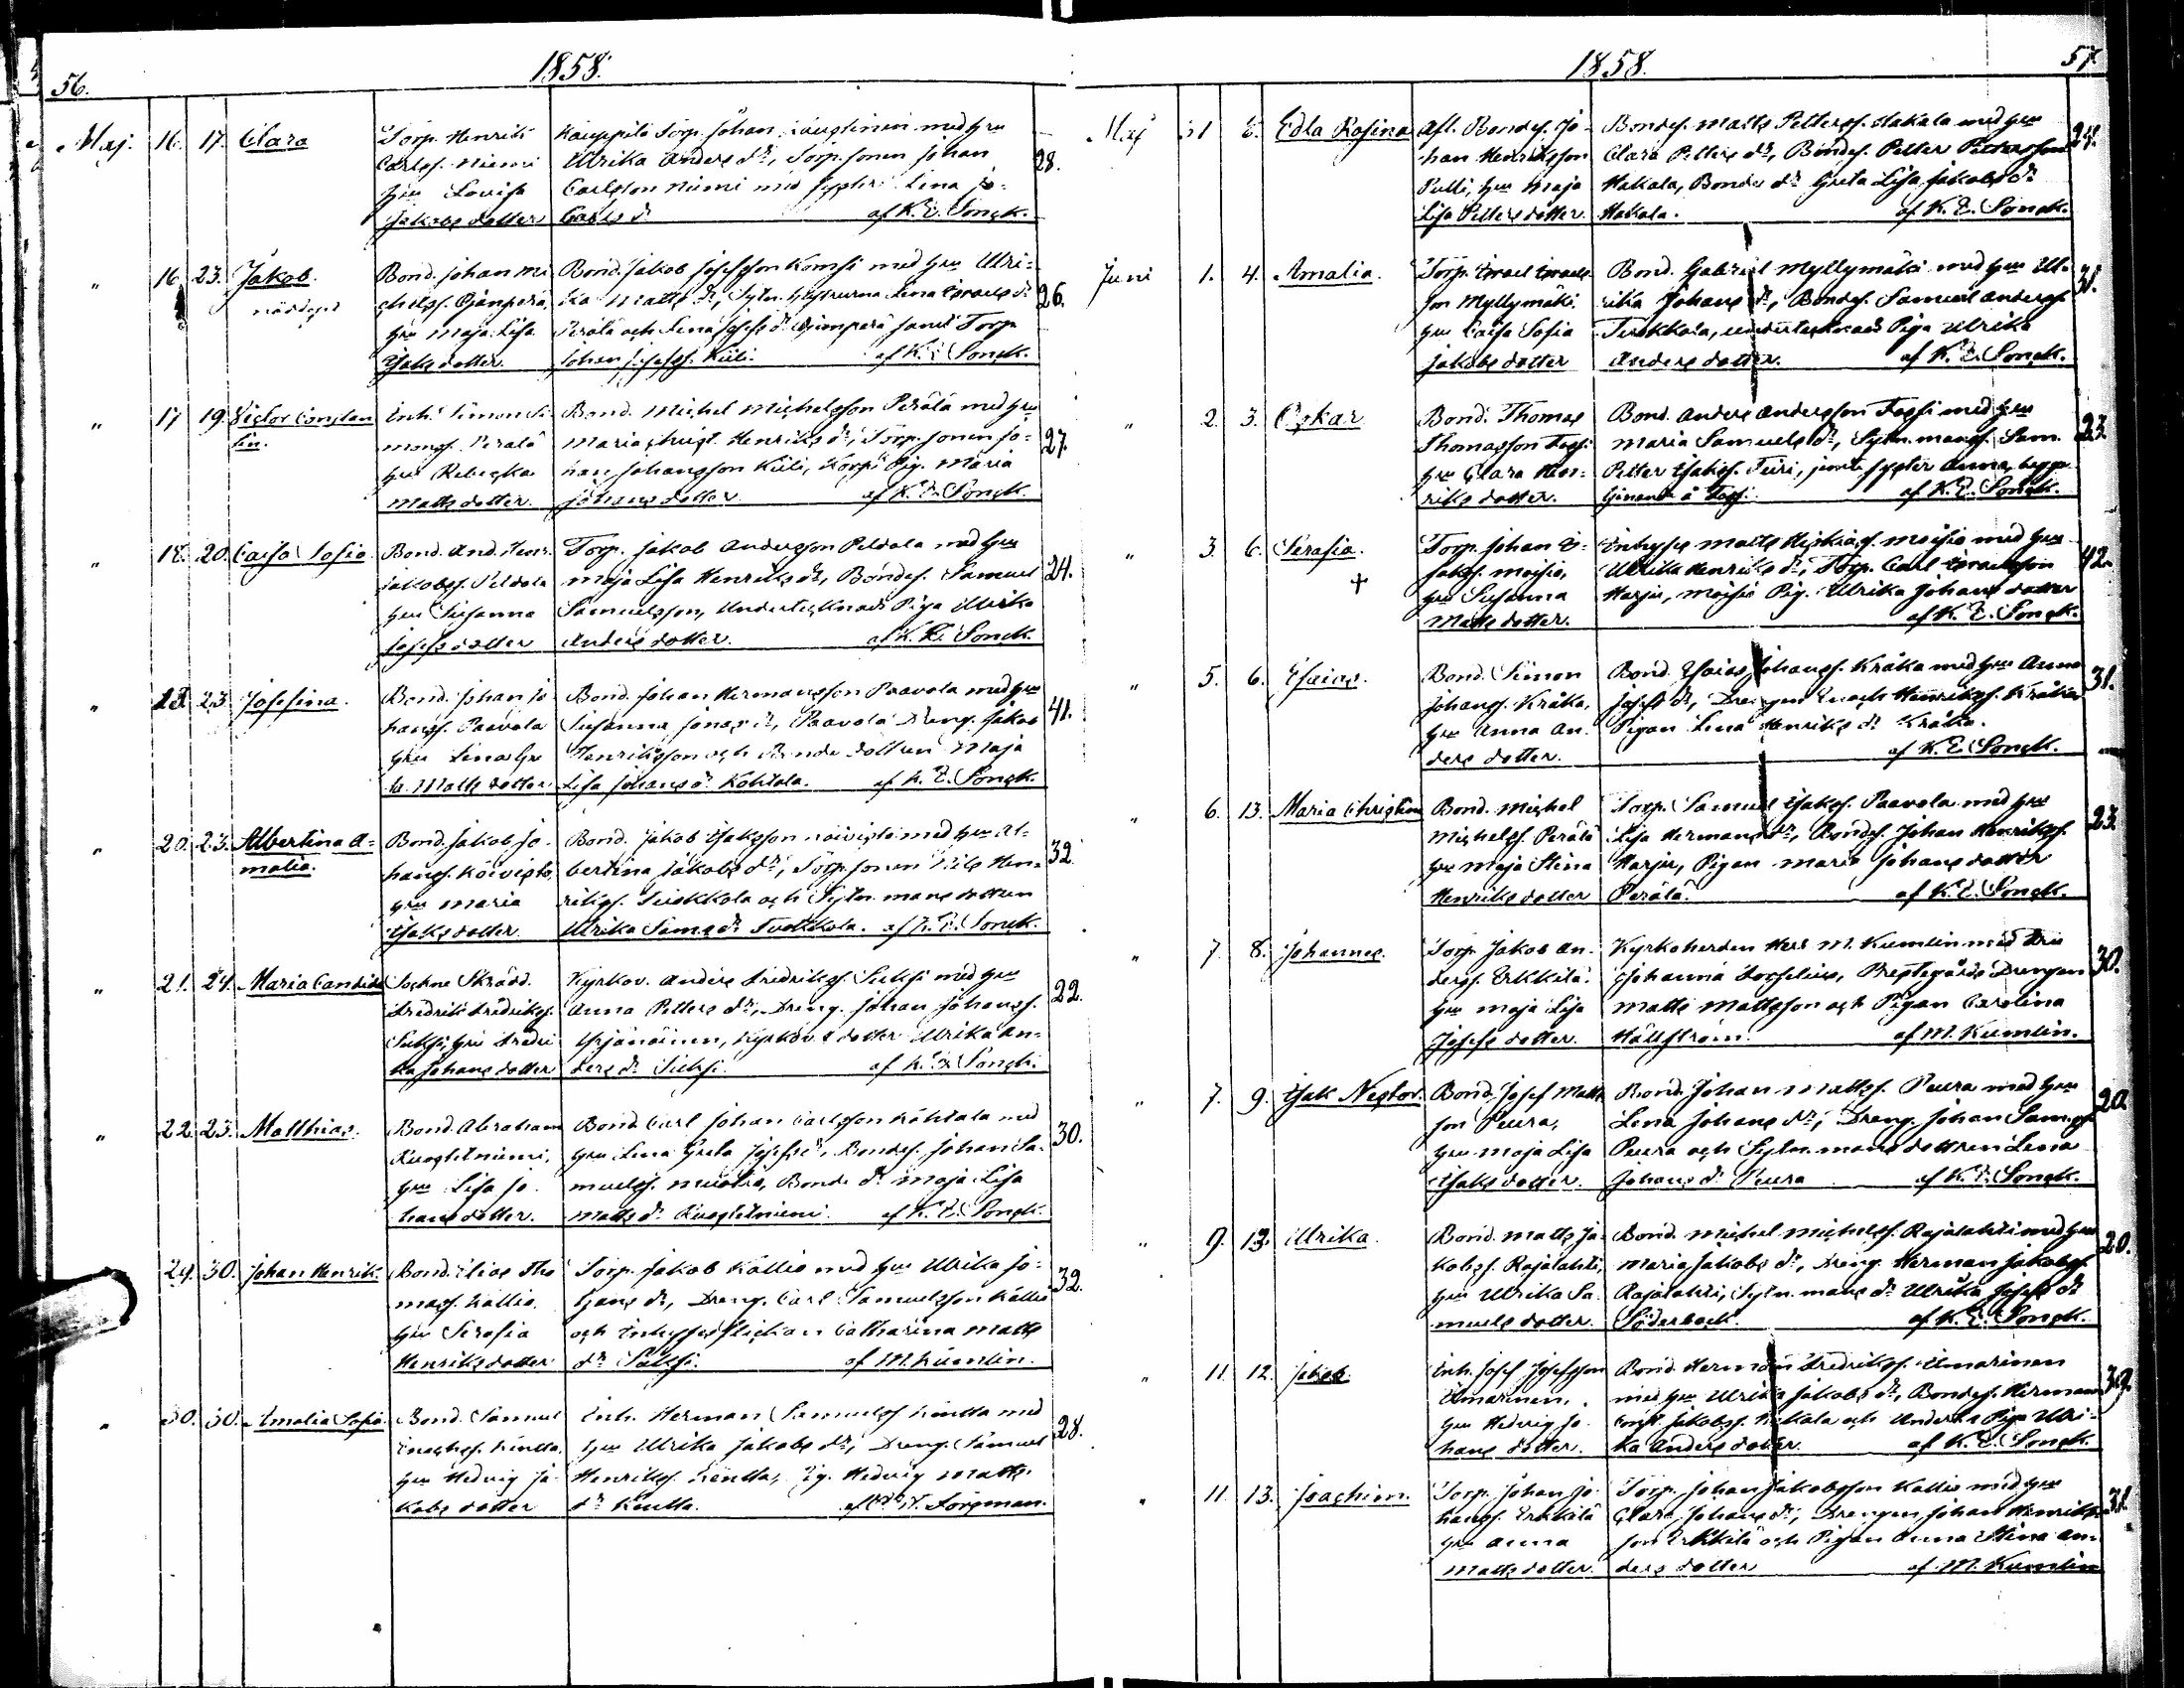 56.
1858.
Maj. 16. 17. Clara
Torp. Henrik
Carlss. Niemi
hu Lovisa
Jakobs dotter
Kauppila Torp. Johan med hu
Ulrika Anders dr, Torp. sonen Johan
Carlsson Niemi med syster Lena
Carls dr af K. E. Sonck.
28.
" 16. 23. Jakob.
nöddopt
Bond. Johan Mi
chelss.
hu Maja Lisa
Isaks dotter.
Bond. Jakob Josefsson Komsi med hu Ulri-
ka Matts dr, Sytn. hustrurna Lena Israels dr
Perälä och Lena Josefs dr samt Torp.
Johan Josefss. Kiili. af K. E. Sonck.
26.
" 17 19. Victor Constan
tin.
Inh. Simon Si-
monss. Perälä
hu Rebecka
Matts dotter.
Bond. Michel Michelsson Perälä med hu
Maria Henriks dr, Torp. sonen Jo-
han Johansson Kiili, Pig. Maria
Johans dotter. af K. E. Sonck.
27.
" 18. 20. Caisa Sofia.
Bond. And. Henr.
Jakobss. Peldola
hu Susanna
Josefs dotter
Torp. Jakob Andersson Peldola med hu
Maja Lisa Henriks dr, Bondes. Samuel
Samuelsson, Undertecknads Piga Ulrika
Anders dotter. af K. E. Sonck.
24.
" 23 Josefina.
Bond. Johan Jo
hanss. Paavola
hu Lena Gre
ta Matts dotter
Bond. Johan Hermansson Paavola med hu
Susanna Jonas dr, Paavola Dreng. Jakob
Henriksson och Bonde dottren Maja
Lisa Johans dr Kohtala. af K. E. Sonck.
41.
" 20. 23. Albertina A-
malia.
Bond. Jakob Jo-
hanss. Koivisto,
hu Maria
Isaks dotter.
Bond. Jakob Isaksson Koivisto med hu Al-
bertina Jakobs dr, Torp. sonen Nils Hen-
rikss. och Sytn. mans dottren
Ulrika Sims dr af K. E. Sonck.
32.
" 21. 24. Maria Candida
Sockne Skrädd.
Fredrik Fredrikss.
Suksi, hu Fredri
ka Johans dotter
Kyrkov. Anders Fredrikss. Suksi med hu
Anna Petters dr, Dreng. Johan Johanss.
Kyrkov.s dotter Ulrika An-
ders dr Suksi. af K. E. Sonck.
22.
" 22. 23. Matthias.
Bond. Abraham
hu Lisa Jo-
hans dotter.
Bond. Carl Johan Carlsson Kohtala med
hu Lena Greta Josefs dr, Bondes. Johan Sa-
muelss. Bonde dr Maja Lisa
Matts dr af K. E. Sonck.
30.
29. 30. Johan Henrik.
Bond. Elias Tho
mass. Kallio.
hu Serafia
Henriks dotter
Torp. Jakob Kallio med hu Ulrika Jo-
hans dr, Dreng. Carl Samuelsson Kallio
och Inhyses flickan Catharina Matts
dr Suksi. af M. Kumlin.
32.
" 30. 30. Amalia Sofia.
Bond. Samuel
Enochss. Kentta,
hu Hedvig Ja-
kobs dotter
Inh. Herman Samuelss Kentta med
hu Ulrika Jakobs dr, Dreng. Samuel
Henrikss. Kentta, Pig. Hedvig Matts
dr Kentta. Forsman.
28.
1858.
57.
Maj 31 Edla Rosina
Afl. Bondes. Jo-
han Henriksson
Pulli, hu Maja
Lisa Petters dotter.
Bondes. Matts Petterss. Hakala med hu
Clara Petters dr, Bondes. Petter Pettersson
Hakala, Bondes dr Greta Lisa Jakobs dr
Hakala. af K. E. Sonck.
24.
Juni 1. 4. Amalia.
Torp. Israel Israels
son Myllymäki
hu Caisa Sofia
Jakobs dotter
Bond. Gabriel Myllymäki med hu Ul-
rika Johans dr, Bondes. Samuel Anderss.
undertecknads Piga Ulrika
Anders dotter. af K. E. Sonck.
31.
" 2. 3. Oskar
Bond. Thomas
Thomasson
hu Clara Hen-
riks dotter.
Bond. Anders Andersson med hu
Maria Samuels dr, Sytn. manss. Sam.
Petter Isakss. jemte syster Anna,
af K. E. Sonck.
23.
" 3. 6. Serafia.
+
Torp. Johan I-
sakss. Moisio,
hu Susanna
Matts dotter.
Inhyses Matts Moisio med hu
Ulrika Henriks dr, Torp. Carl Israelsson
Harju, Moisio Pig. Ulrika Johans dotter
af K. E. Sonck.
42.
" 5. 6. Esaias.
Bond. Simon
Johanss. Kråka,
hu Anna An-
ders dotter.
Bond. Esaias Johanss. Kråka med hu Anna
Josefs dr, Drengen Enoch Henrikss. Kråka
Pigan Lena Henriks dr Kråka.
af K. E. Sonck.
31.
" 6. 13. Maria Christina
Bond. Michel
Michelss. Perälä
hu Maja Stina
Henriks dotter
Torp. Samuel Isakss. Paavola med hu
Lisa Hermans dr, Bondes. Johan Henrikss.
Harju, Pigan Maria Johans dotter
Perälä. af K. E. Sonck.
23.
" 7. 8. Johannes.
Torp. Jakob An-
derss. Erkkilä.
hu Maja Lisa
Josefs dotter.
Kyrkoherden Herr M. Kumlin med Fru
Johanna Prestegårds Drengen
Matts Mattsson och Pigan Carolina
Hällström. af M. Kumlin.
30.
" 7. 9. Isak Nestor.
Bond. Josef Matts
son Peura,
hu Maja Lisa
Isaks dotter.
Bond. Johan Mattss. Peura med hu
Lena Johans dr, Dreng. Johan Sam.s.
Peura och Sytn. mans dottren Lena
Johans dr Peura af K. E. Sonck.
20.
" 9. 13. Ulrika.
Bond. Matts Ja-
kobss. Rajalahti,
hu Ulrika Sa-
muels dotter.
Bond. Michel Michelss. Rajalahti med hu
Maria Jakobs dr, Dreng. Herman Jakobss.
Rajalahti, Sytn. mans dr Ulrika Josefs dr
Söderback. af K. E. Sonck.
20.
" 11. 12. Jakob.
Inh. Josef Josefsson
Ilmarinen,
hu Hedvig Jo-
hans dotter.
Bond. Herman Fredrikss. Ilmarinen
med hu Ulrika Jakobs dr, Bondes. Herman
Jakobss. och Underts Piga Ulri-
ka Anders dotter. af K. E. Sonck.
39.
" 11. 13. Joachim.
Torp. Johan Jo-
hanss. Erkkilä
hu Anna
Matts dotter.
Torp. Johan Jakobsson Kallio med hu
Clara Johans dr, Drengen Johan Henriks
son Erkkilä och Pigan Anna Stina An-
ders dotter af M. Kumlin
31.